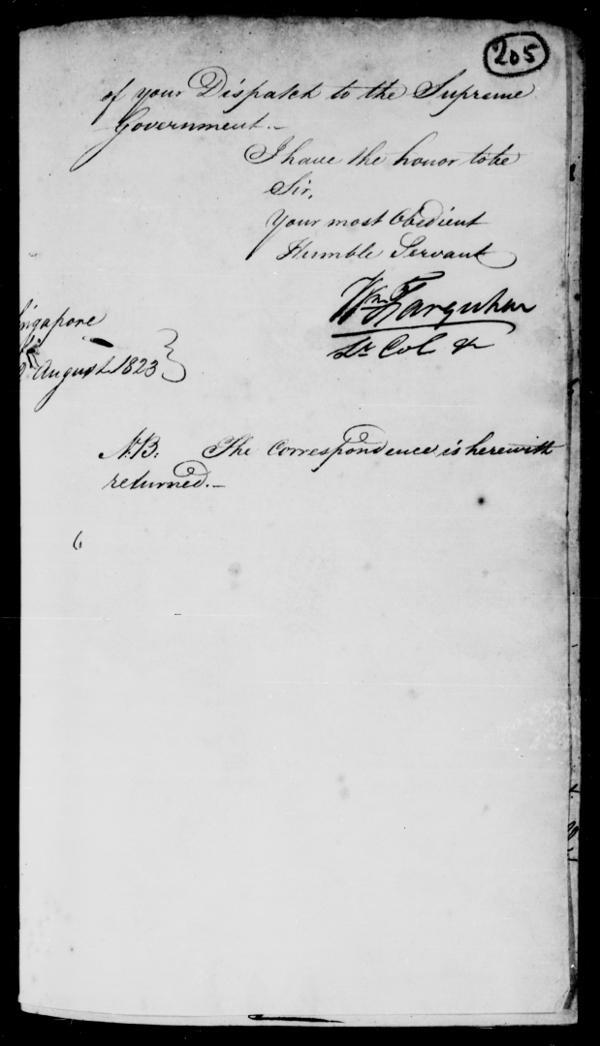 205
of your Dispatch to the Supreme
Government.-
I have the honor to be
Sir,
Your most Obedient
Humble Servant
Wm Farquhar
Lt Col &
Singapore
August 1823
N.B. The Correspondence is herewith
returned.-